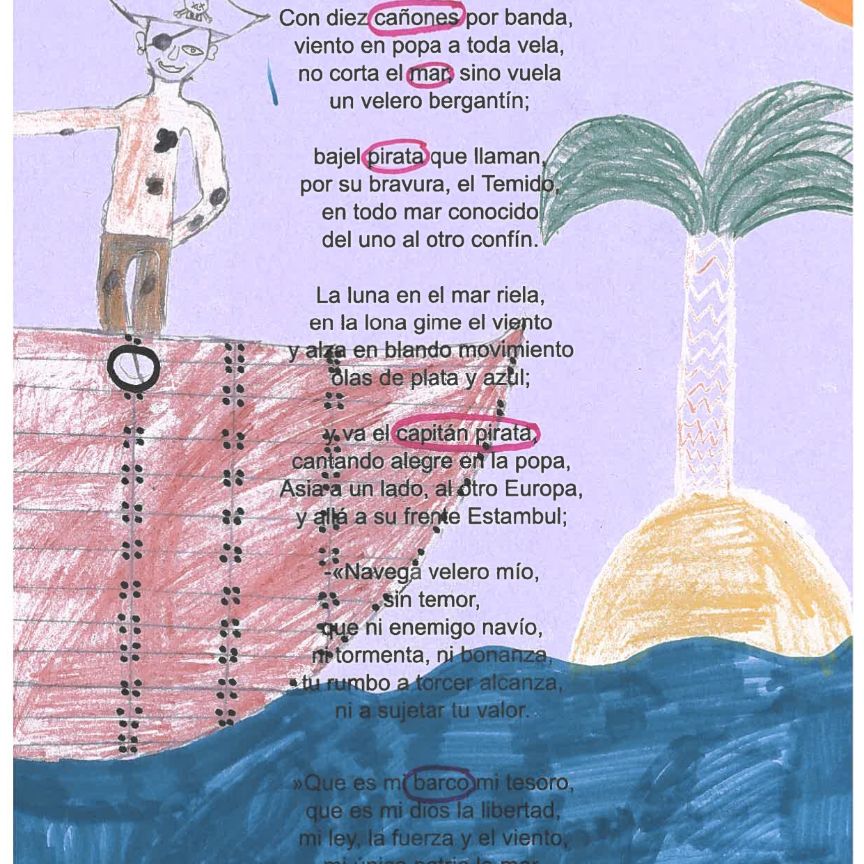 Con diez cañones por banda,
viento en popa a toda vela,
no corta el mar, sino vuela
un velero bergantín;
bajel pirata que llaman,
por su bravura, el Temido,
en todo mar conocido
del uno al otro confín.
La luna en el mar riela,
en la lona gime el viento
y alza en blando movimiento
olas de plata y azul;
y va el capitán pirata,
cantando alegre en la popa,
Asia a un lado, al otro Europa,
y allá a su frente Estambul;
-«Navega velero mío,
sin temor,
que ni enemigo navío,
ni tormenta, ni bonanza,
tu rumbo a torcer alcanza,
ni a sujetar tu valor.
»Que es mi barco mi tesoro,
que es mi dios la libertad,
mi ley, la fuerza y el viento,
mi única patria la mar.